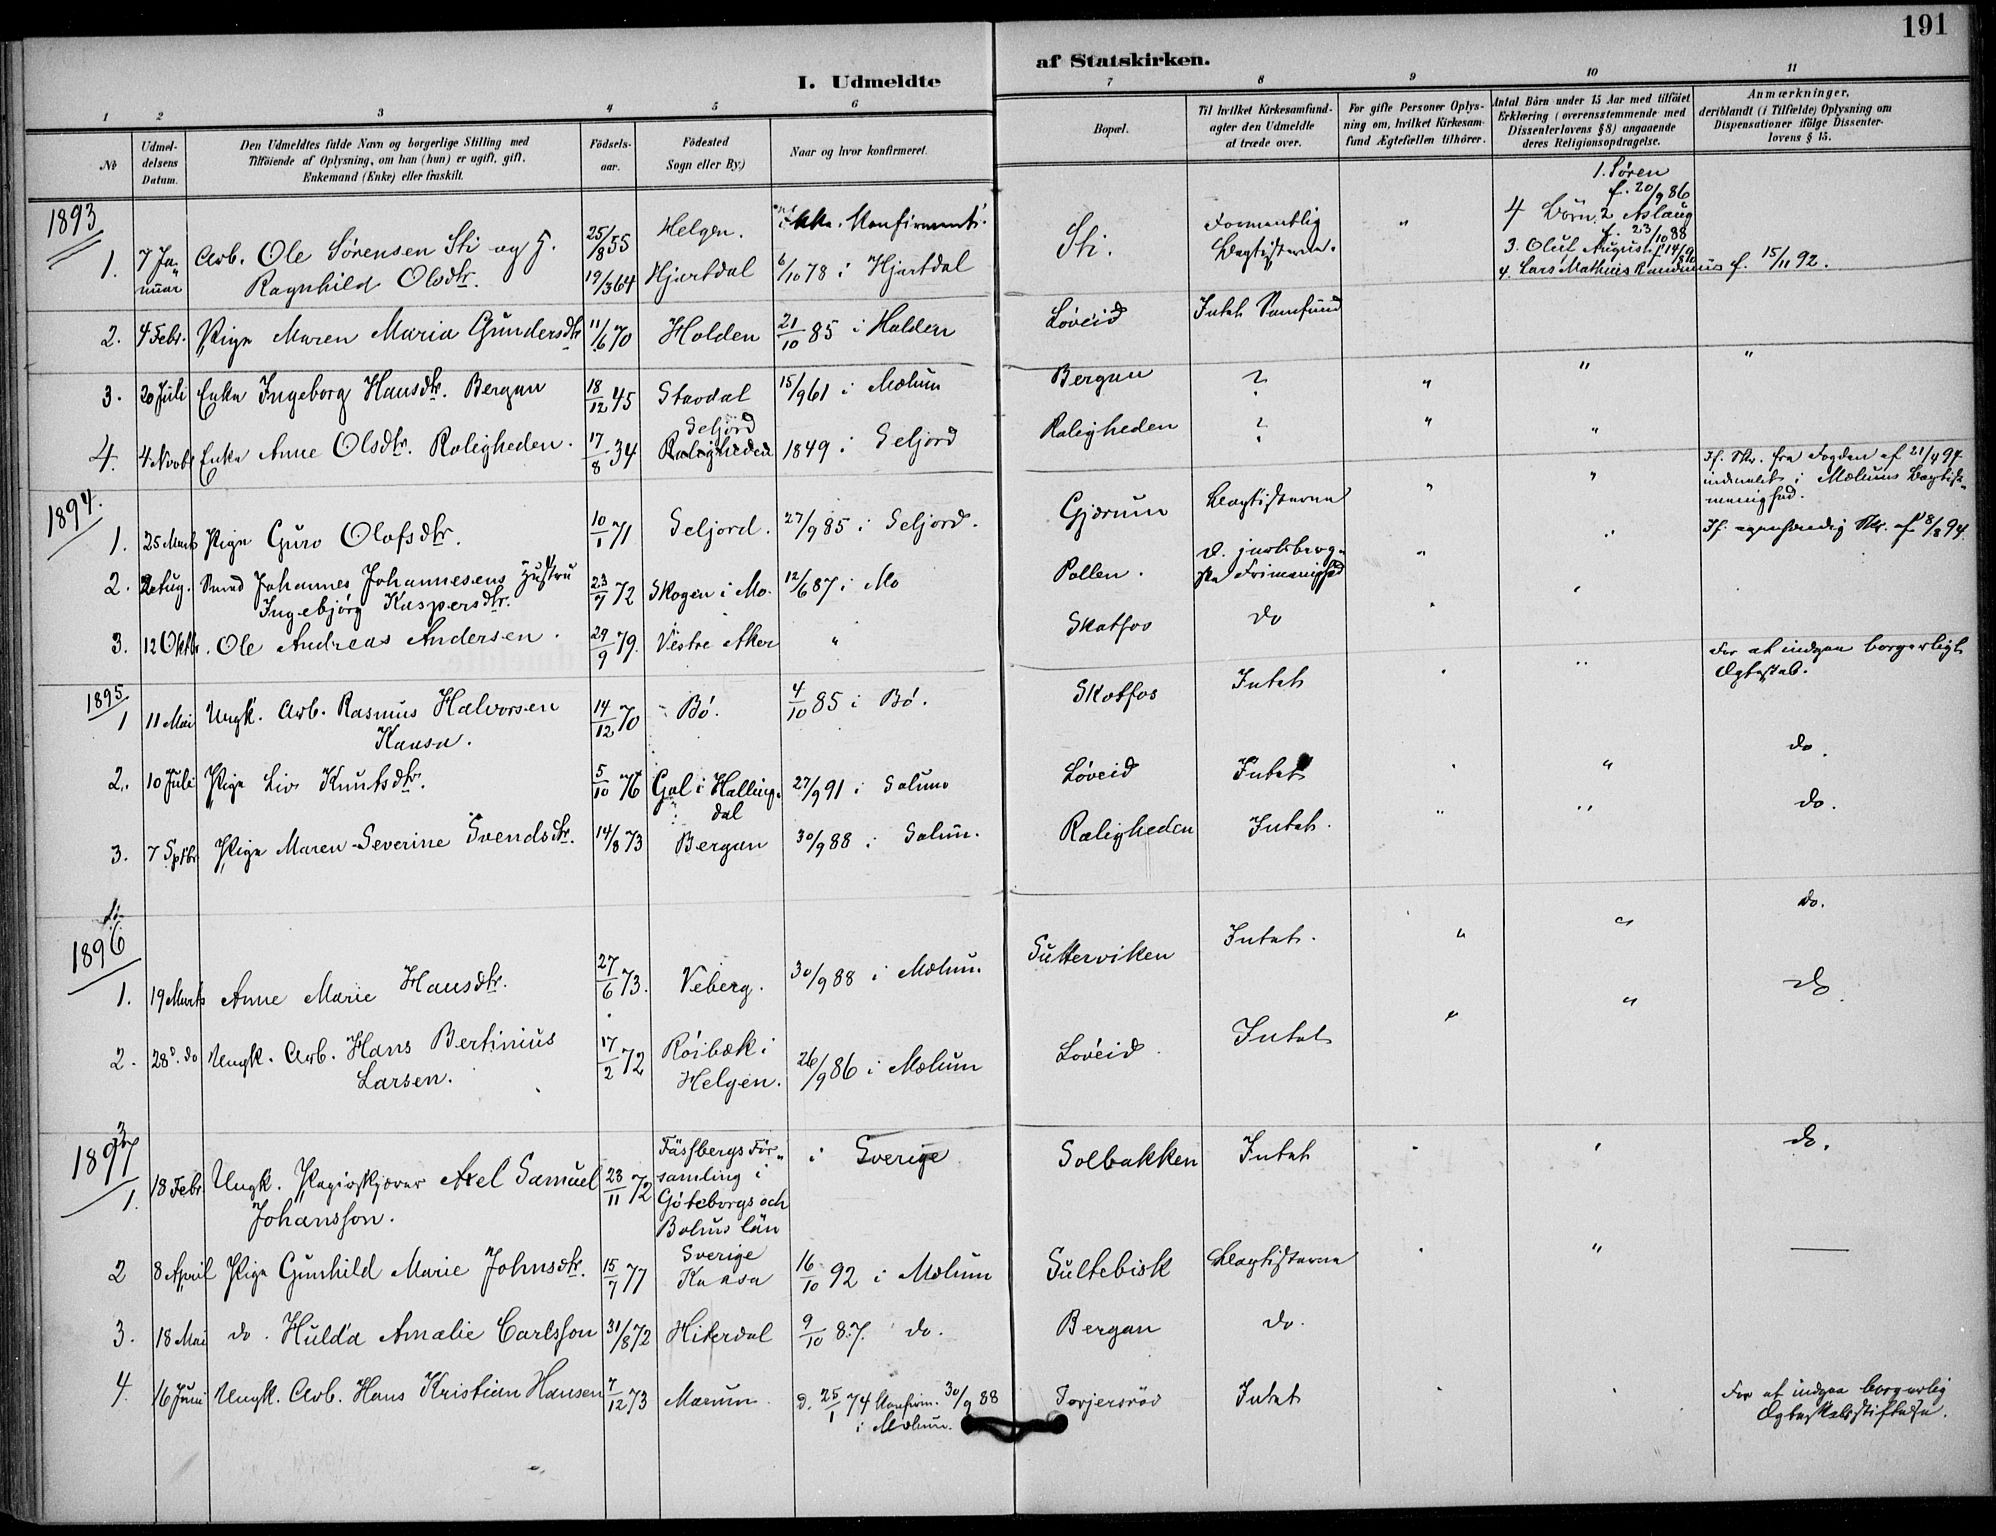 191
I. Udmeldte af Statskirken.
1 2 3 4 5 6 7 8 9 10 11
№
Udmel-
delsens
Datum.
Den Udmeldtes fulde Navn og borgerlige Stilling med
Tilföiende af Oplysning, om han (hun) er ugift, gift,
Enkemand (Enke) eller fraskilt.
Födsels-
aar.
Födested
Sogn eller By.)
Naar og hvor konfirmeret.
Bopæl.
Til hvilket Kirkesamfund-
agter den Udmeldte
at træde over.
For gifte Personer Oplys-
ning om, hvilket Kirkesam-
fund Ægtefællen tilhörer.
Antal Börn under 15 Aar med tilföiet
Erklæring (overensstemmende med
Dissenterlovens §8) angaaende
deres Religionsopdragelse.
Anmærkninger,
deriblandt (i Tilfælde) Oplysning om
Dispensationer ifölge Dissenter-
lovens § 15.
1893
1. 7 Ja- Arb. Ole Sørensen Sti og H. 25/8 55 Helgen. ikke Konfirmeret. Sti. Formentlig " 4 Børn, 1. Søren
f. 20/9 86
2 Aslaug
f. 23/10 88
nuar Ragnhild Olsdtr. 19/3 64 Hjartdal 6/10 78 i Hjartdal Baptisterne. 3. Oluf August f. 14/8 90
4. Lars Mathias f. 15/11 92.
2. 4 Febr. Pige Maren Maria Gundersdtr 11/6 70 Holden 21/10 85 i Holden Løveid Intet Samfund
3. 20 Juli Enke Ingeborg Hansdtr. Bergan 18/12 45 Stavdal 15/9 61 i Mælum Bergan ? " " "
4. 4 Novbr Enke Anne Olsdtr. Roligheden. 17/8 34 Seljord
Roligheden 1849 i Seljord Roligheden ? " "
1894.
1. 25 Marts Pige Guro Olofsdtr. 10/1 71 Seljord. 27/9 85 i Seljord. Gjerum Baptisterne " " If. Skr. fra Fogden af 21/4 94
indmeldt i Mælums Baptist-
menighed.
2. 2 Aug. Smed Johannes Johannesens Hustru 23/7 72 Skogen i Mo. 12/6 87 i Mo Pollen. D. jarlsberg- " " If. egenhændig Skr. af 8/8 94.
Ingebjørg Kaspersdtr. ske Frimenighed
3. 12 Oktbr. Ole Andreas Andersen. 29/9 79. Vestre Aker " Skotfos do " "
1895
1 11 Mai Ungk. Arb. Rasmus Halvorsen 14/12 70 Bø. 4/10 85 i Bø. Skotfos Intet " " For at indgaa borgerligt
Kaasa. Ægteskab.
2. 10 Juli Pige Liv Knutsdtr. 5/10 76 Gol i Halling-
dal 27/9 91 i Solum Løveid Intet " " do.
3. 7 Sptbr Pige Maren Severine Svendsdtr. 14/8 73 Bergan 30/9 88 i Solum. Roligheden Intet. " " do.
1896
1. 19 Marts Anne Marie Hansdtr. 27/6 73. Veberg. 30/9 88 i Mælum. Sutterviken Intet. " " do.
2. 28de do Ungk. Arb. Hans Bertinius 17/2 72 Røibæk i 26/9 86 i Mælum Løveid Intet " " do.
Larsen. Helgen.
1897
1. 18 Febr. Ungk. Papirskjærer Axel Samuel 23/11 72 Fässbergs För- i Sverige Solbakken Intet " " do.
Johansson. samling i
Göteborgs och
Bohus län
Sverige
2 8 April Pige Gunhild Marie Johnsdtr. 15/7 77 Kaasa 16/10 92 i Mælum Sultebisk Baptisterne " " —
3. 18 Mai do. Hulda Amalie Carlsson 31/8 72 Hiterdal 9/10 87. do. Bergan do.
4. 16 Juni Ungk. Arb. Hans Kristian Hansen 7/12 73 Mælum D. 25/1 74 Konfirm. 30/9 88
i Mælum. Torjersrød Intet " " For at indgaa borgerlig
Ægteskabsstiftelse.